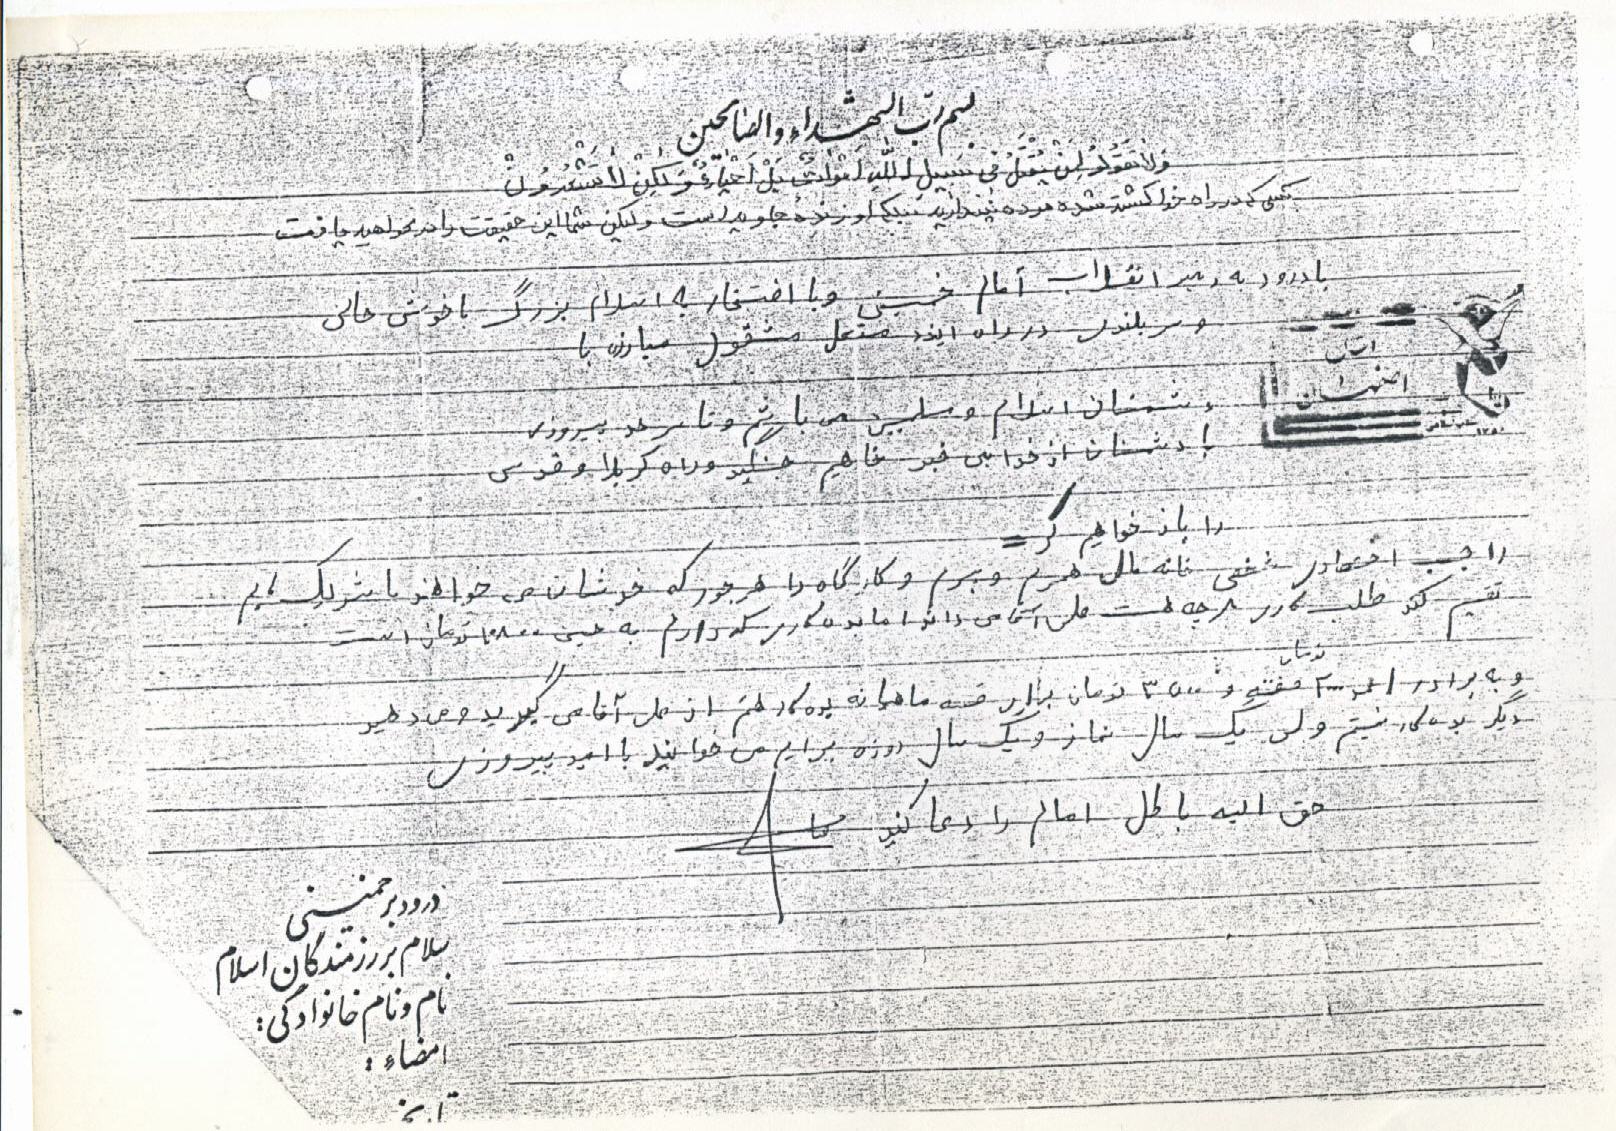 بسم ربّ الشهداء والصالحین
وَلا تَقُولُوا لِمَنْ یُقْتَلُ فی سَبیلِ اللّهِ اَمْواتٌ بَلْ اَحْیاءٌ وَلکِنْ لا تَشْعُرُونْ
کسی که در راه خدا کشته شده مرده نپندارید بلکه او زنده جاوید است ولیکن شما این حقیقت را در نخواهید یافت
با درود به رهبر انقلاب امام خمینی و با افتخار به اسلام بزرگ با خوش حالی
و سر بلندی در راه مشقول مبارزه با
دشمنان اسلام و مسلمین می باشم و تا سر حد پیروزی
با دشمنان از خدا بی خبر خاهیم جنگید و راه کربلا و قدس
را باز خواهیم کرد
استان
اصفهان
را جب اختصادی شخصی خانه مال هرم و برم و کارگاه را هر جور که خودشان می خواهند با شریک هایم
تقسیم کنند طلب کاری هر چه هست علی آقا می داند اما بده کاری که دارم به حسن ۱۰۸۰۰ تومان است
تومان
و به برادر احمد ۲۰۰۰ هفته و ۳۵۰۰ تومان برای ماهیانه بده کار هم از علی آقا می گیرید و می دهید
دیگر بده کار نیستم ولی یک سال نماز و یک سال روزه برایم می خوانید با امید پیروزی
حق الیه باطل امام را دعا کنید
درود بر خمینی
سلام بر رزمندگان اسلام
نام و نام خانوادگی :
امضاء :
تاریخ